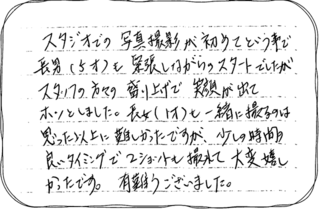 スタジオでの写真撮影が初めてという事で
長男(5才)も緊張しながらのスタートでしたが
スタッフの方々の盛り上げで笑顔が出て
ホッとしました。長女(1才)も一緒に撮るのは
思った以上に難しかったですが、少しの時間
良いタイミングで2ショットも撮れて大変嬉し
かったです。有難うございました。